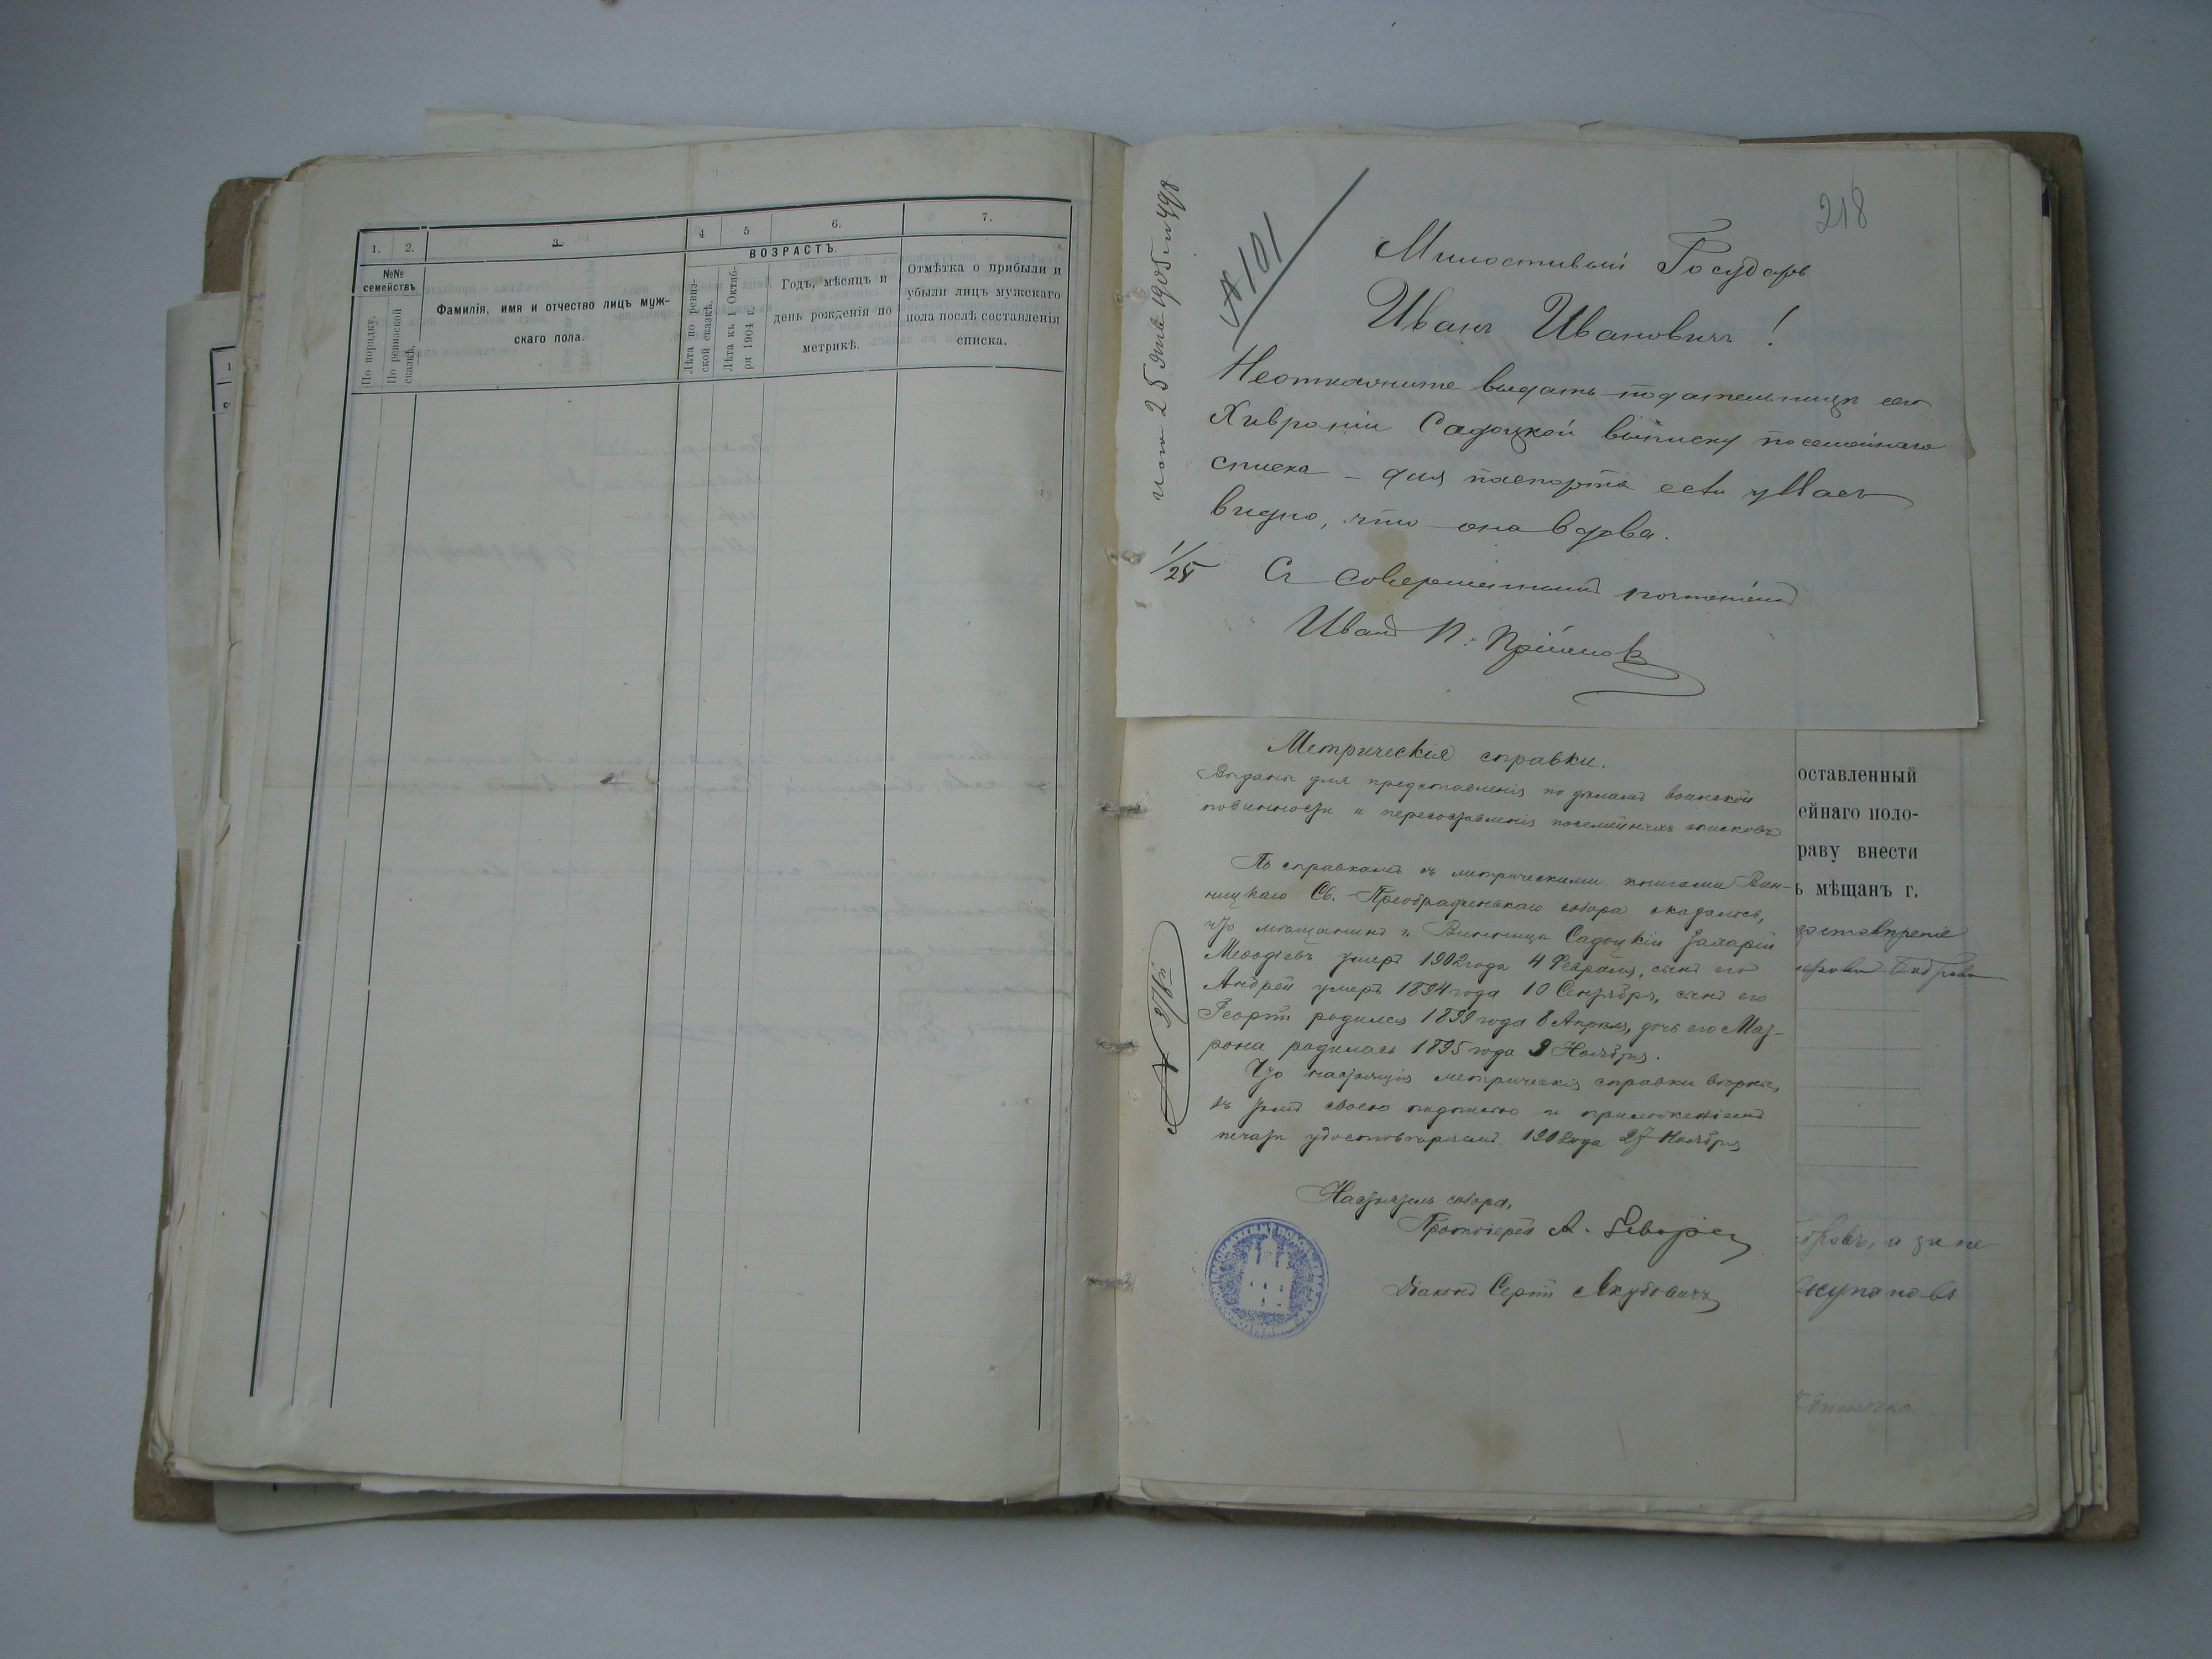 1. 2. 3. 4 5 6. 7.
№№ семействъ.
По порядку.
По ревизской сказкѣ.
Фамилія, имя и отчество лицъ муж-
скаго пола.
ВОЗРАСТЪ.
Лѣта по ревиз-
ской сказкѣ.
Лѣта къ 1 Октяб-
ря 1904 г.
Годъ, мѣсяцъ и
день рожденія по
метрикѣ.
Отмѣтка о прибыли и
убыли лицъ мужскаго
пола послѣ составленія
списка.
218
№ 101
Милостивый Государь
Иванъ Ивановичъ!
Неоткажите выдать подательницѣ сего
Хивроніи Садоцкой выписку посемейнаго
списка – для паспорта если у Васъ
видно, что она вдова.
1/25
Съ совершеннымъ почтеніемъ
Иванъ П.
Метрическія справки.
Выданы для представленія по дѣламъ воинской
повинности и пересоставленія посемейныхъ списковъ
По справкамъ съ метрическими книгами Вин-
ницкаго Св. Преображенскаго собора оказалось,
что мѣщанинъ г. Винницы Садоцкій Захарій
Меѳодіевъ умеръ 1902 года 4 Февраля, сынъ его
Андрей умеръ 1894 года 10 Сентября, сынъ его
Георгій родился 1899 года 8 Апрѣля, дочь его Мат-
рона родилась 1895 года 9 Ноября.
Что настоящія метрическія справки вѣрны,
въ томъ своею подписью и приложеніемъ
печати удостовѣряемъ. 1908 года 27 Ноября
№ 378
Настоятель собора,
Протоіерей А.
Діаконъ Сергій Якубовичъ
оставленный
ейнаго поло-
раву внести
ь мѣщанъ г.